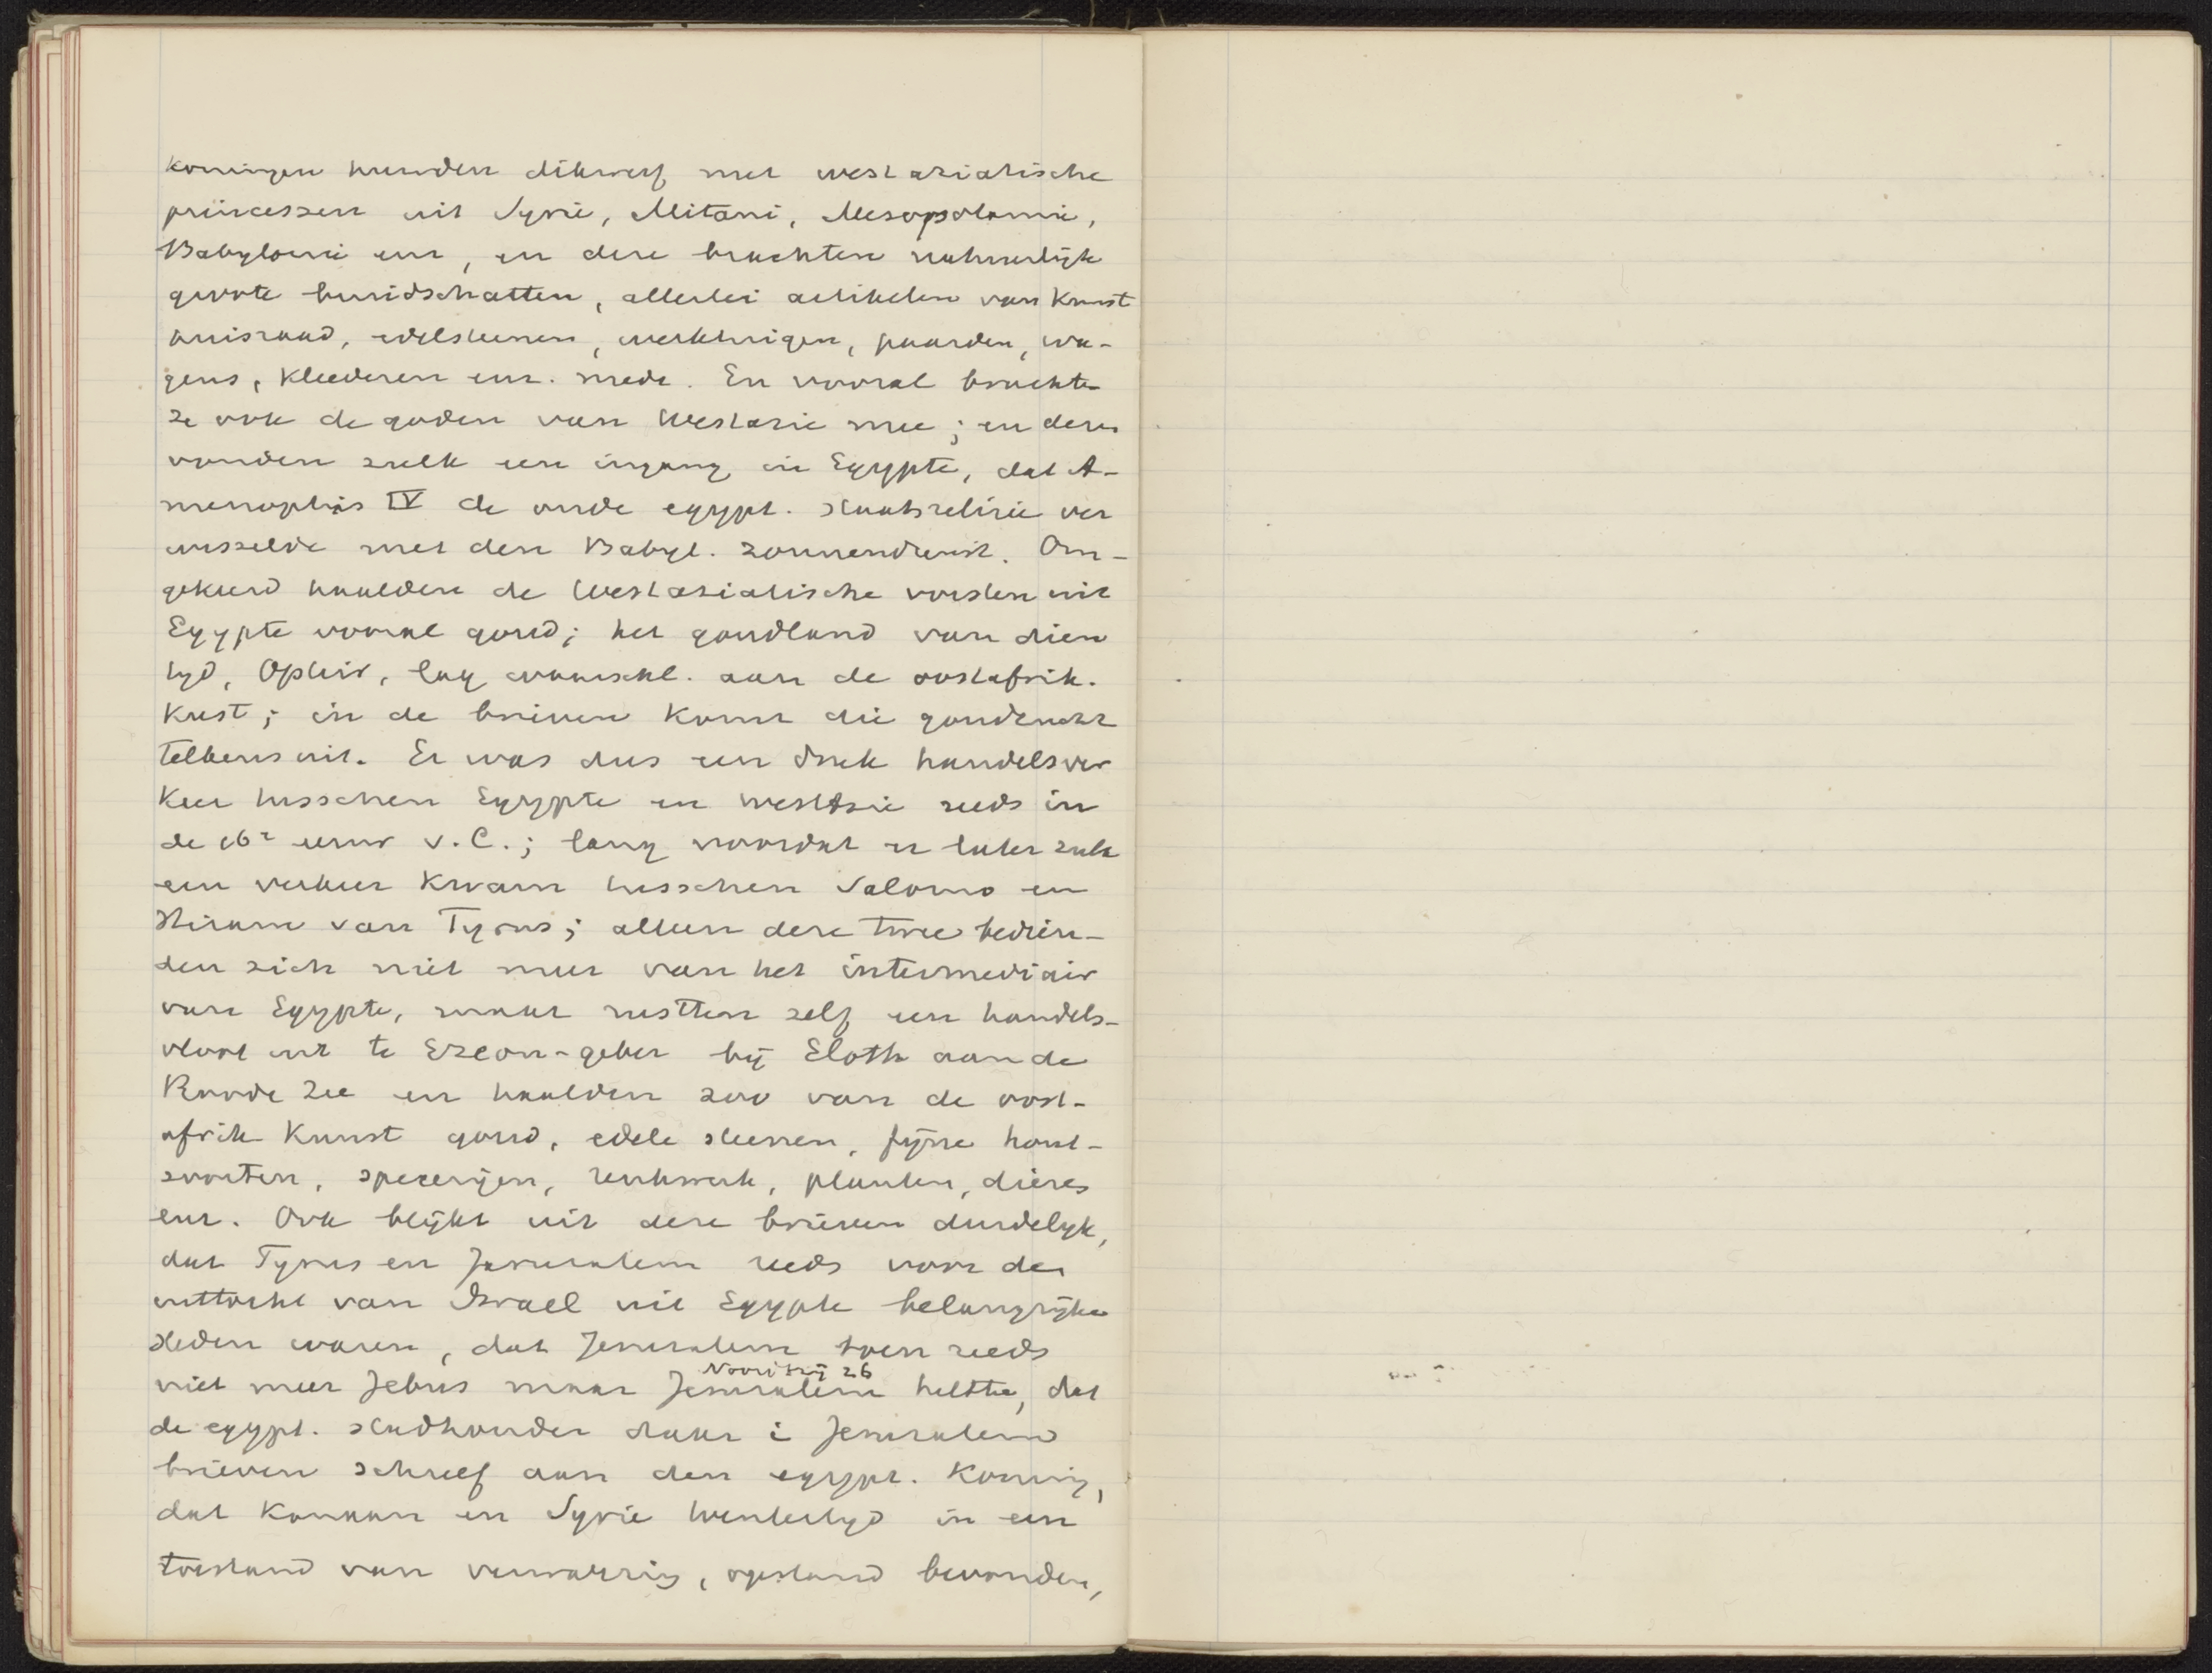 koningen huwden dikwerf met westaziatische
prinsessen uit Syrie, Mitani, Mesopotamie,
Babylonie enz, en deze brachten natuurlijk
groote bruidschatten, allerlei artikelen van kunst
huisraad, edelsteenen, werktuigen, paarden, wa-
gens, kleederen enz. mede. En vooral brachten
ze ook de goden van Westazie mee; en deze
vonden zulk een ingang in Egypte, dat A-
menophis IV de oude egypt. staatsreligie ver
wisselde met den Babyl. zonnendienst. Om-
gekeerd haalden de Westaziatische vorsten uit
Egypte vooral goud; het goudland van dien
tyd, Ophir, lag waarschl. aan de oostafrik.
kust; in de brieven komt die goudzucht
telkens uit. Er was dus een druk handelsver
keer tusschen Egypte en WestAzie reeds in
de 16e eeuw v. C.; lang voordat er later zulk
een verkeer kwam tusschen Salomo en
Hiram van Tyrus; alleen deze twee bedien-
den zich niet meer van het intermediair
van Egypte, maar rustten zelf een handels-
vloot uit te Ezeon-geber bij Eloth aan de
Roode Zee en haalden zoo van de oost-
afrik kunst goud, edele steenen, fijne hout-
soorten, specerijen, reukwerk, planten, dieren
enz. Ook blijkt uit deze brieven duidelyk,
dat Tyrus en Jeruzalem reeds voor den
uittocht van Israel uit Egypte belangrijke
steden waren, dat Jeruzalem toen reeds
Noordtzij 26
niet meer Jebus maar Jeruzalem heette, dat
de egypt. stadhouder daar i Jeruzalem
brieven schreef aan den egypt. koning,
dat Kanaan en Syrie destertyd in een
toestand van verwarring, opstand bevonden,